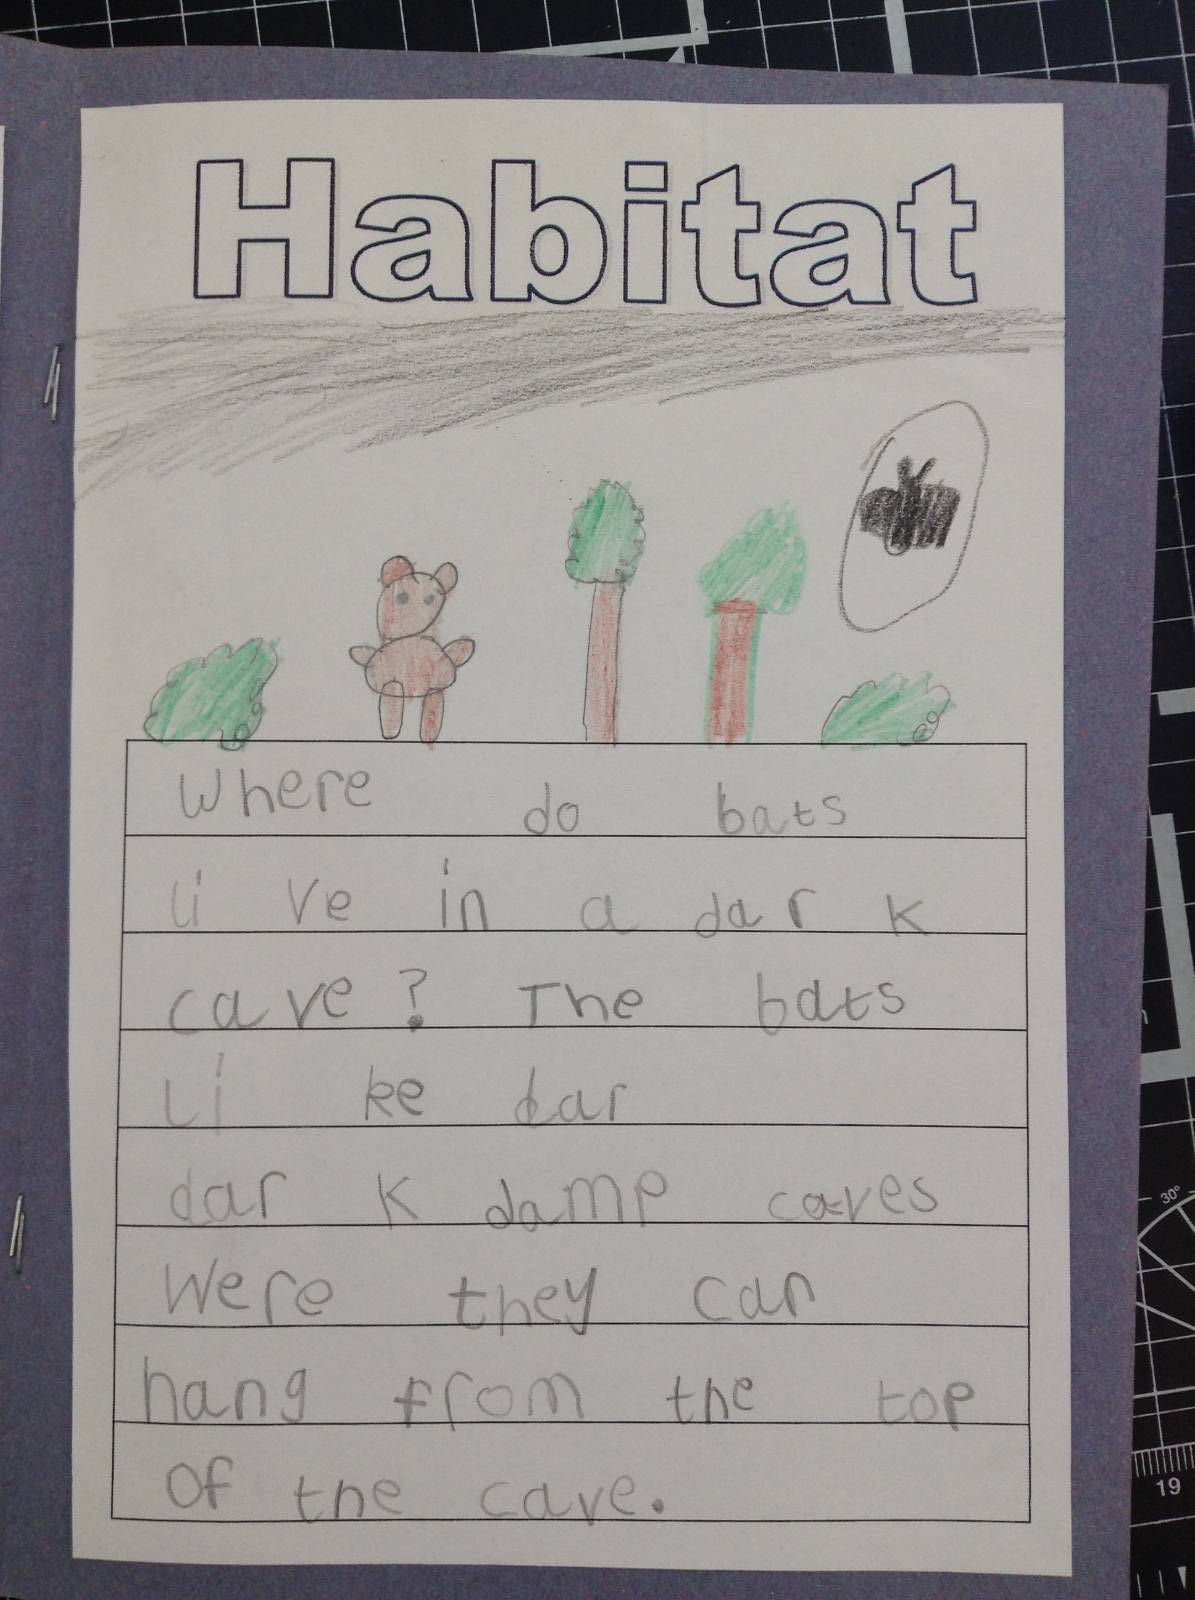 Habitat
Where do bats
li ve in a dar k
cave? The bats
Li ke dar
dar k damp caves
Were they can
hang from the top
of the cave.
30°
19